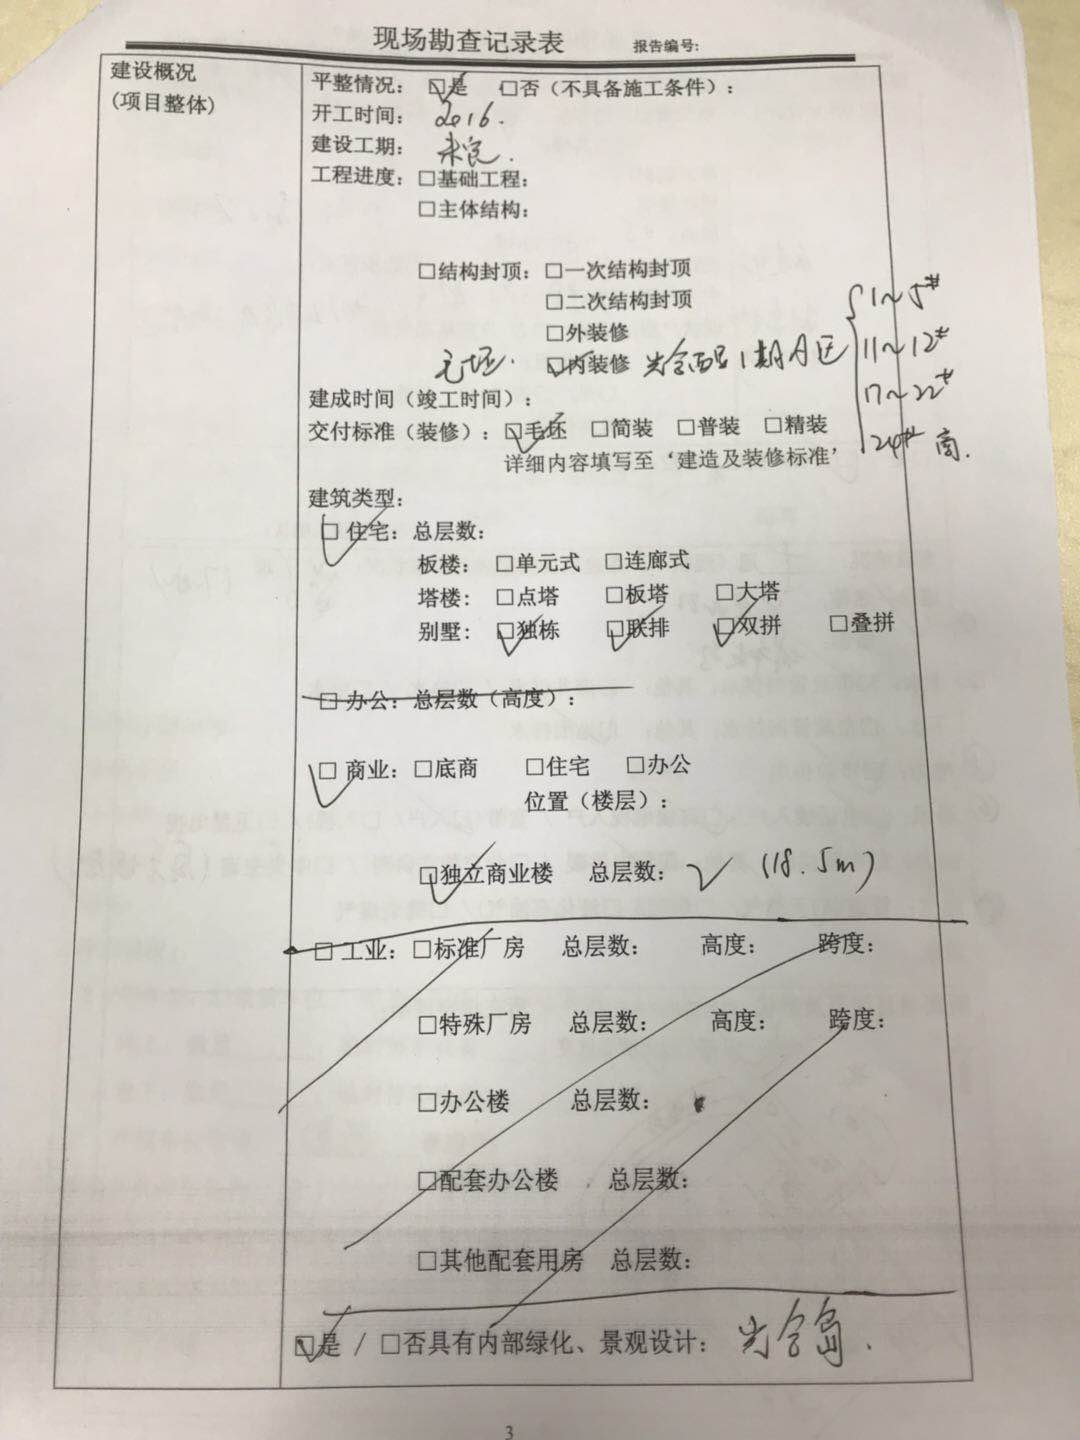 现场勘查记录表 报告编号:
建设概况
(项目整体)
平整情况: ☑是 □否（不具备施工条件）:
开工时间: 2016.
建设工期: 未定.
工程进度: □基础工程:
□主体结构:
□结构封顶: □一次结构封顶
□二次结构封顶
□外装修
毛坯. ☑内装修 1期A区 { 1~5#
11~12#
17~22#
24# 商.
建成时间（竣工时间）:
交付标准（装修）: ☑毛坯 □简装 □普装 □精装
详细内容填写至‘建造及装修标准’
建筑类型:
☑ 住宅: 总层数:
板楼: □单元式 □连廊式
塔楼: □点塔 □板塔 □大塔
别墅: ☑独栋 ☑联排 ☑双拼 □叠拼
□ 办公: 总层数（高度）:
☑ 商业: □底商 □住宅 □办公
位置（楼层）:
☑独立商业楼 总层数: √ (18.5m)
□ 工业: □标准厂房 总层数: 高度: 跨度:
□特殊厂房 总层数: 高度: 跨度:
□办公楼 总层数:
□配套办公楼 总层数:
□其他配套用房 总层数:
☑是 / □否具有内部绿化、景观设计:
3